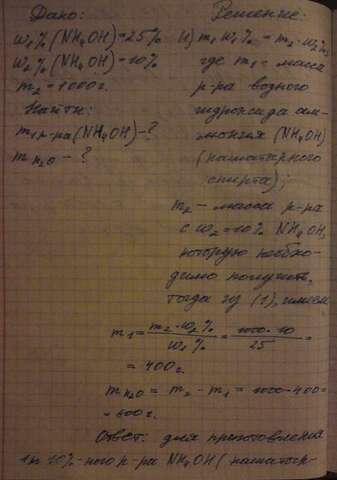 Дано:
W₁%(NH₄OH)=25%
W₂%(NH₄OH)=10%
m₂=1000г.
Найти:
m₁ р-ра(NH₄OH)-?
m H₂O - ?
Решение:
1) m₁W₁% = m₂·W₂%,
где m₁ = масса
р-ра водного
гидроксида ам-
мония (NH₄OH)
(нашатырного
спирта);
m₂ - масса р-ра
с W₂=10% NH₄OH,
которую необхо-
димо получить,
тогда из (1), имеем
m₁ = m₂·W₂% / W₁% = 1000·10 / 25 =
= 400г.
m H₂O = m₂ - m₁ = 1000-400=
= 600г.
Ответ: для приготовления
10%-ного р-ра NH₄OH (нашатыр-